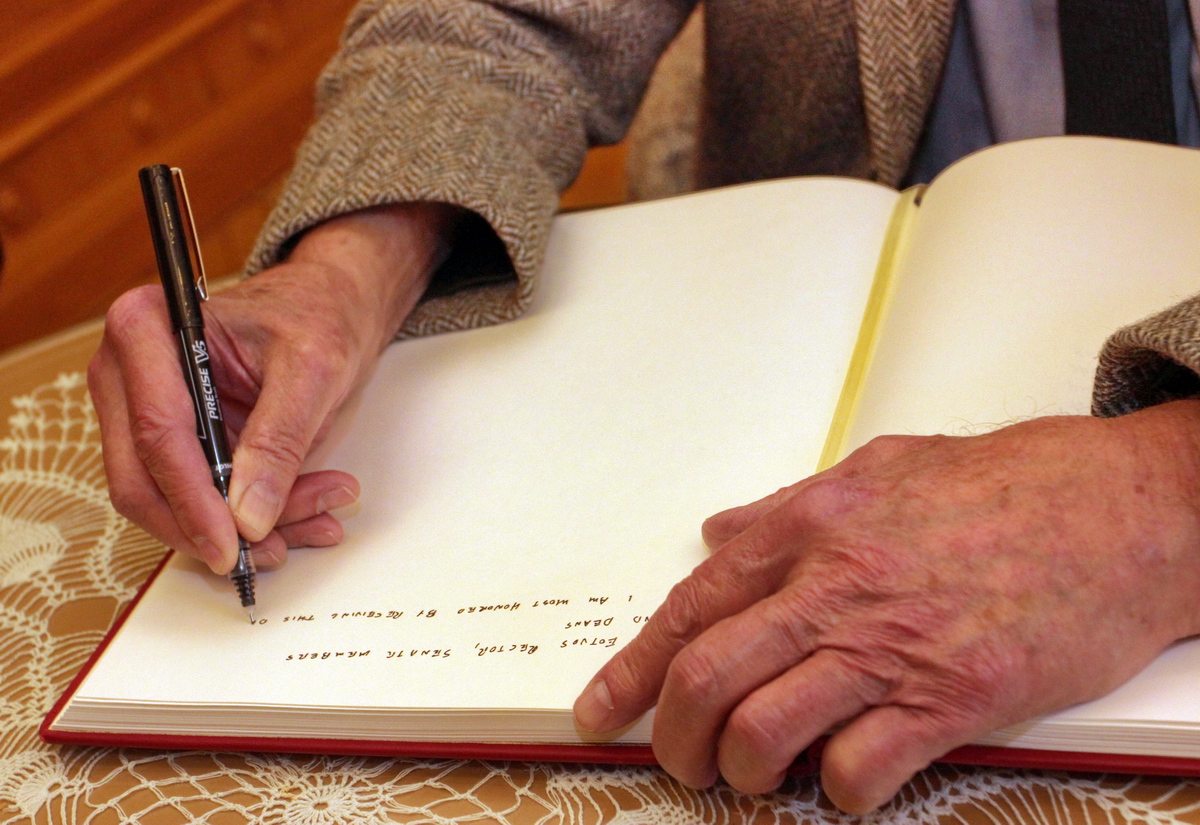 EOTVOS RECTOR, SENATE MEMBERS
ND DEANS
I AM MOST HONORED BY RECEIVING THIS O
PRECISE V5
PILOT